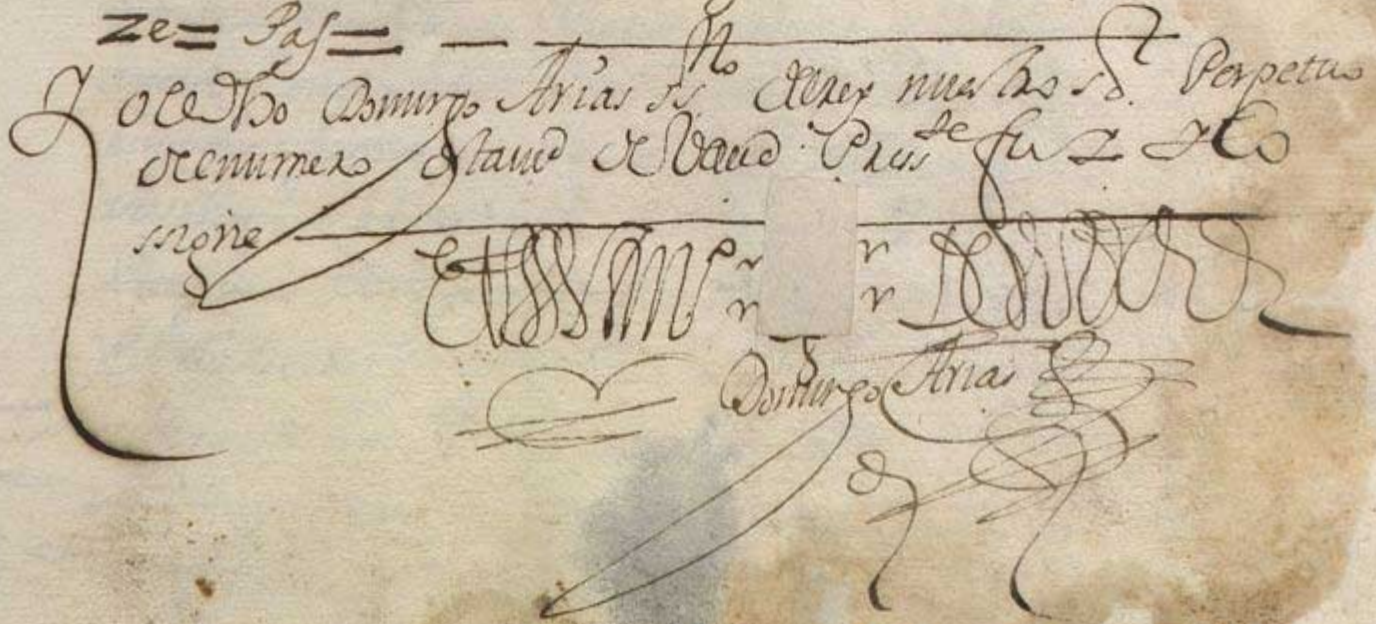 ze= Pas=
Yo el Dho Domingo Arias ss.no del rey nuestro s.r Perpetuo
del numero destaciud de press.te fui
ssigne
En testimo de verdad
Domingo Arias